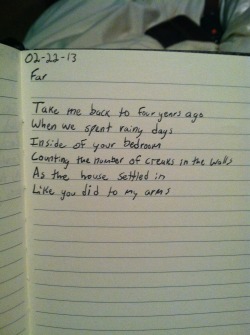 02-22-13
Far
Take me back to four years ago
When we spent rainy days
Inside of your bedroom
Counting the number of creaks in the walls
As the house settled in
Like you did to my arms